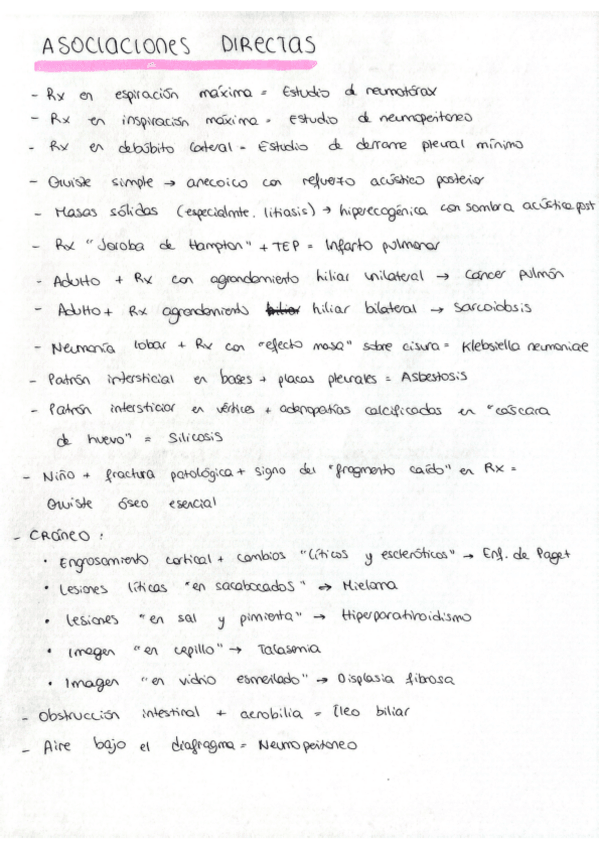 ASOCIACIONES DIRECTAS
- Rx en espiración máxima = Estudio de neumotórax
- Rx en inspiración máxima = estudio de neumoperitoneo
- Rx en debúbito lateral = Estudio de derrame pleural mínimo
- Quiste simple → anecoico con refuerzo acústico posterior
- Masas sólidas (especialmnte. litiasis) → hiperecogénica con sombra acústica post
- Rx "Joroba de Hampton" + TEP = Infarto pulmonar
- Adulto + Rx con agrandamiento hiliar unilateral → Cáncer pulmón
- Adulto + Rx agrandamiento hiliar bilateral → Sarcoidosis
- Neumonía lobar + Rx con "efecto masa" sobre cisura = Klebsiella neumoniae
- Patrón intersticial en bases + placas pleurales = Asbestosis
- Patrón intersticial en vértices + adenopatías calcificadas en "cáscara
de huevo" = Silicosis
- Niño + fractura patológica + signo del "fragmento caído" en Rx =
Quiste óseo esencial
- CRÁNEO :
• Engrosamiento cortical + cambios "líticos y escleróticos" → Enf. de Paget
• Lesiones líticas "en sacabocados" → Mieloma
• Lesiones "en sal y pimienta" → Hiperparatiroidismo
• Imagen "en cepillo" → Talasemia
• Imagen "en vidrio esmerilado" → Displasia fibrosa
- Obstrucción intestinal + aerobilia = Íleo biliar
- Aire bajo el diafragma = Neumoperitoneo